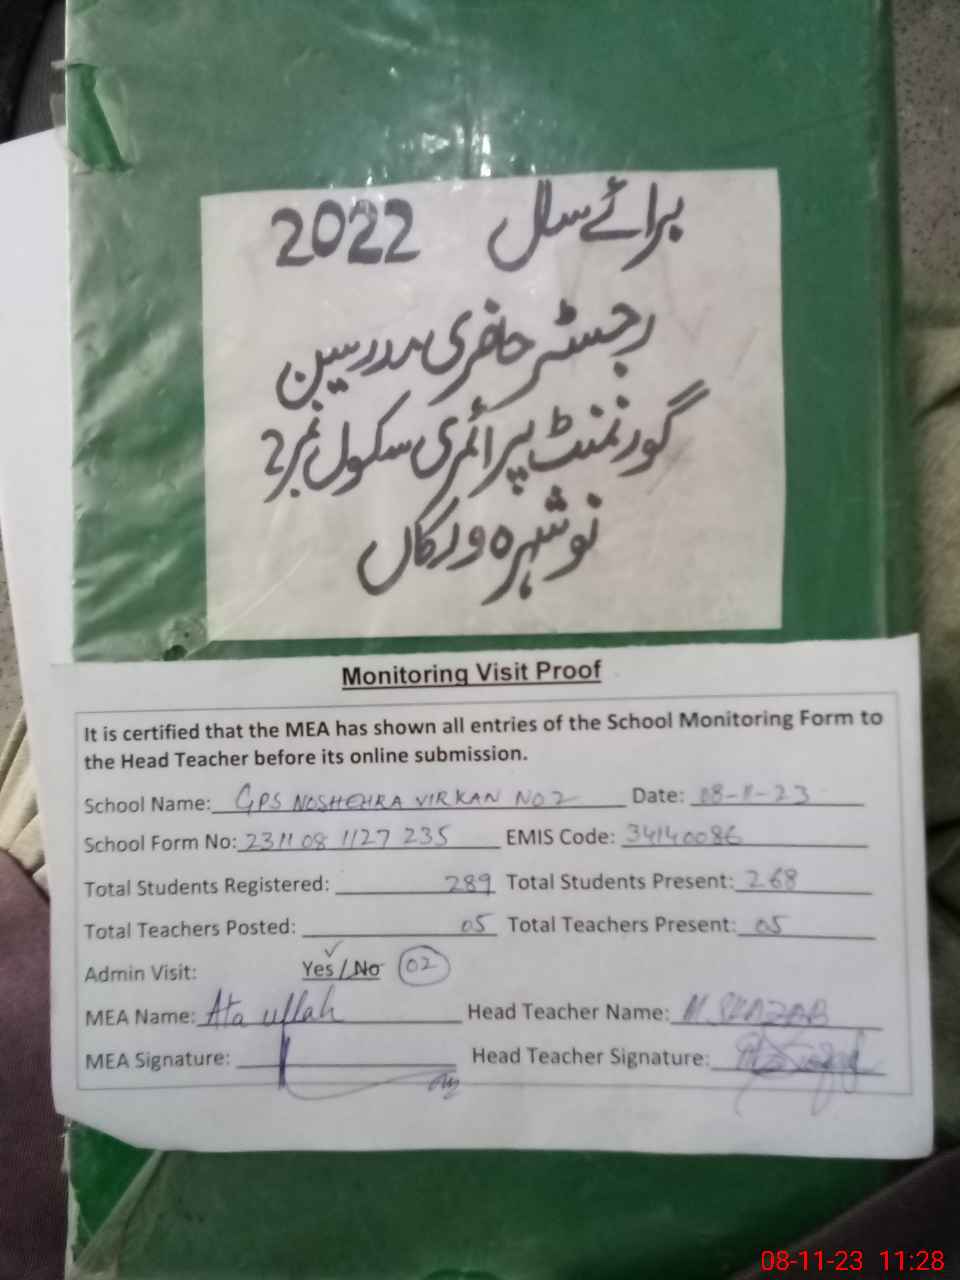 برائے سال 2022
رجسٹر حاضری مدرسین
گورنمنٹ پرائمری سکول نمبر 2
نوشہرہ ورکاں
Monitoring Visit Proof
It is certified that the MEA has shown all entries of the School Monitoring Form to
the Head Teacher before its online submission.
School Name: GPS NOSHEHRA VIRKAN NO 2 Date: 08-11-23
School Form No: 2311 08 1127 235 EMIS Code: 34140086
Total Students Registered: 289 Total Students Present: 268
Total Teachers Posted: 05 Total Teachers Present: 05
Admin Visit: Yes / No 02
MEA Name: Ata ullah Head Teacher Name: M
MEA Signature: Head Teacher Signature:
08-11-23 11:28